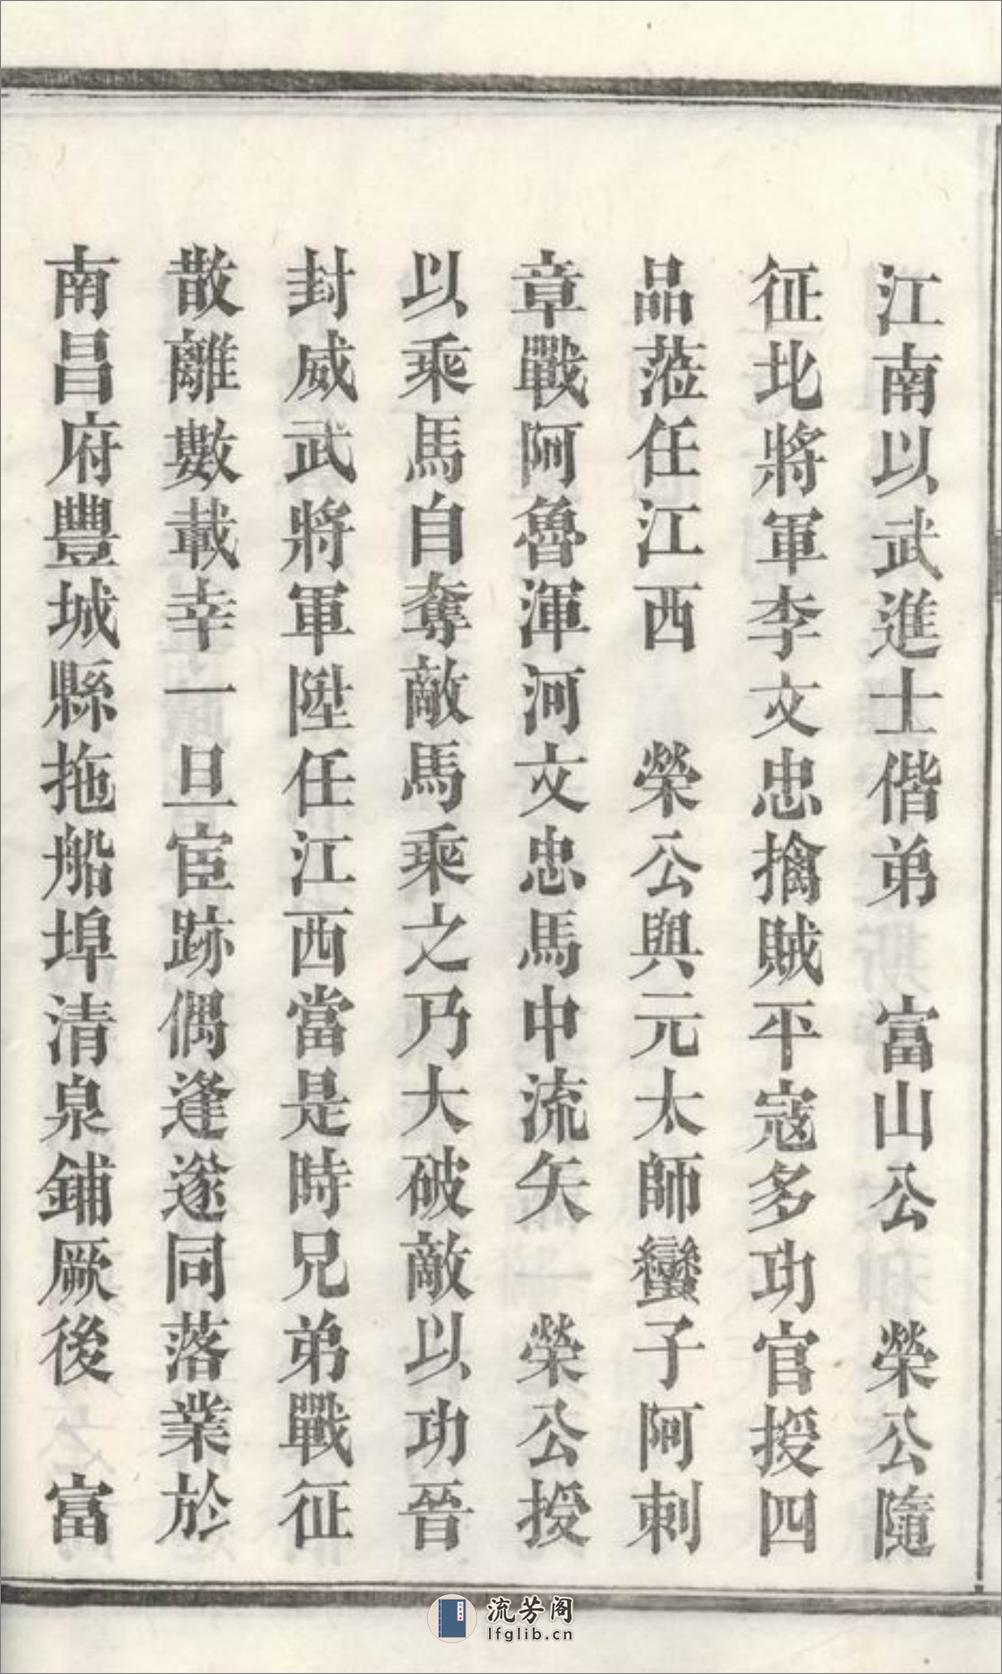 江南以武進士偕弟　富山公　榮公隨
征北將軍李文忠擒賊平寇多功官授四
品蒞任江西　榮公與元太師蠻子阿剌
章戰阿魯渾河文忠馬中流矢　榮公授
以乘馬自奪敵馬乘之乃大破敵以功晉
封威武將軍陞任江西當是時兄弟戰征
散離數載幸一旦宦跡偶逢遂同落業於
南昌府豐城縣拖船埠清泉鋪厥後　富
流芳阁
lfglib.cn